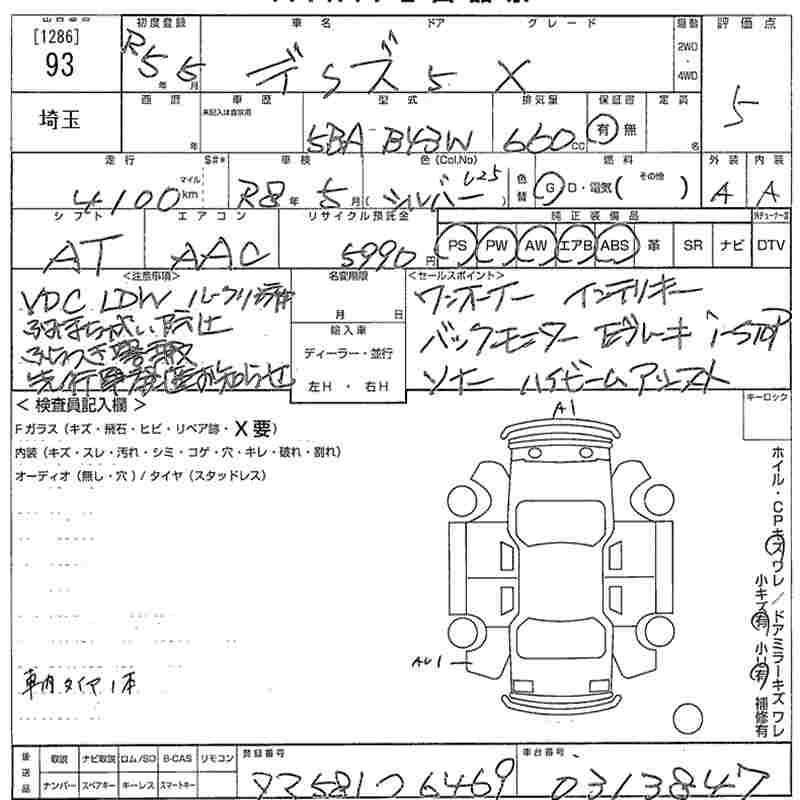 [1286]
93
初度登録
R5 年 5 月
車名
デイズ 5
ドア
グレード
X
駆動
2WD
・
4WD
評価点
5
埼玉
西暦
年
車歴
未記入は自家用
型式
5BA-B43W
排気量
660 cc
保証書
有 無
定員
名
走行
4100
マイル
km
S#*
車検
R8 年 5 月
色(Col,No)
シルバー
色替
燃料
G・D・電気( その他 )
外装
A
内装
A
シフト
AT
エアコン
AAC
リサイクル預託金
5990円
純正装備品
PS PW AW エアB ABS 革 SR ナビ DTV
<注意事項>
VDC LDW
ふみまちがい防止
ふらつき警報
先行車発進お知らせ
名変期限
月 日
輸入車
ディーラー・並行
左H ・ 右H
<セールスポイント>
ワンオーナー インテリキー
バックモニター Eブレーキ i-STOP
ソナー ハイビームアシスト
< 検査員記入欄 >
Fガラス(キズ・飛石・ヒビ・リペア跡・X要)
内装(キズ・スレ・汚れ・シミ・コゲ・穴・キレ・破れ・割れ)
オーディオ(無し・穴)/タイヤ(スタッドレス)
A1
キーロック
ホイル・CPキズワレ/ドアミラーキズワレ
小キズ有 小U有 補修有
AU1
車内タイヤ1本
後送品
取説 ナビ取説 ロム/SD B-CAS リモコン
ナンバー スペアキー キーレス スマートキー
登録番号
車台番号
0313847